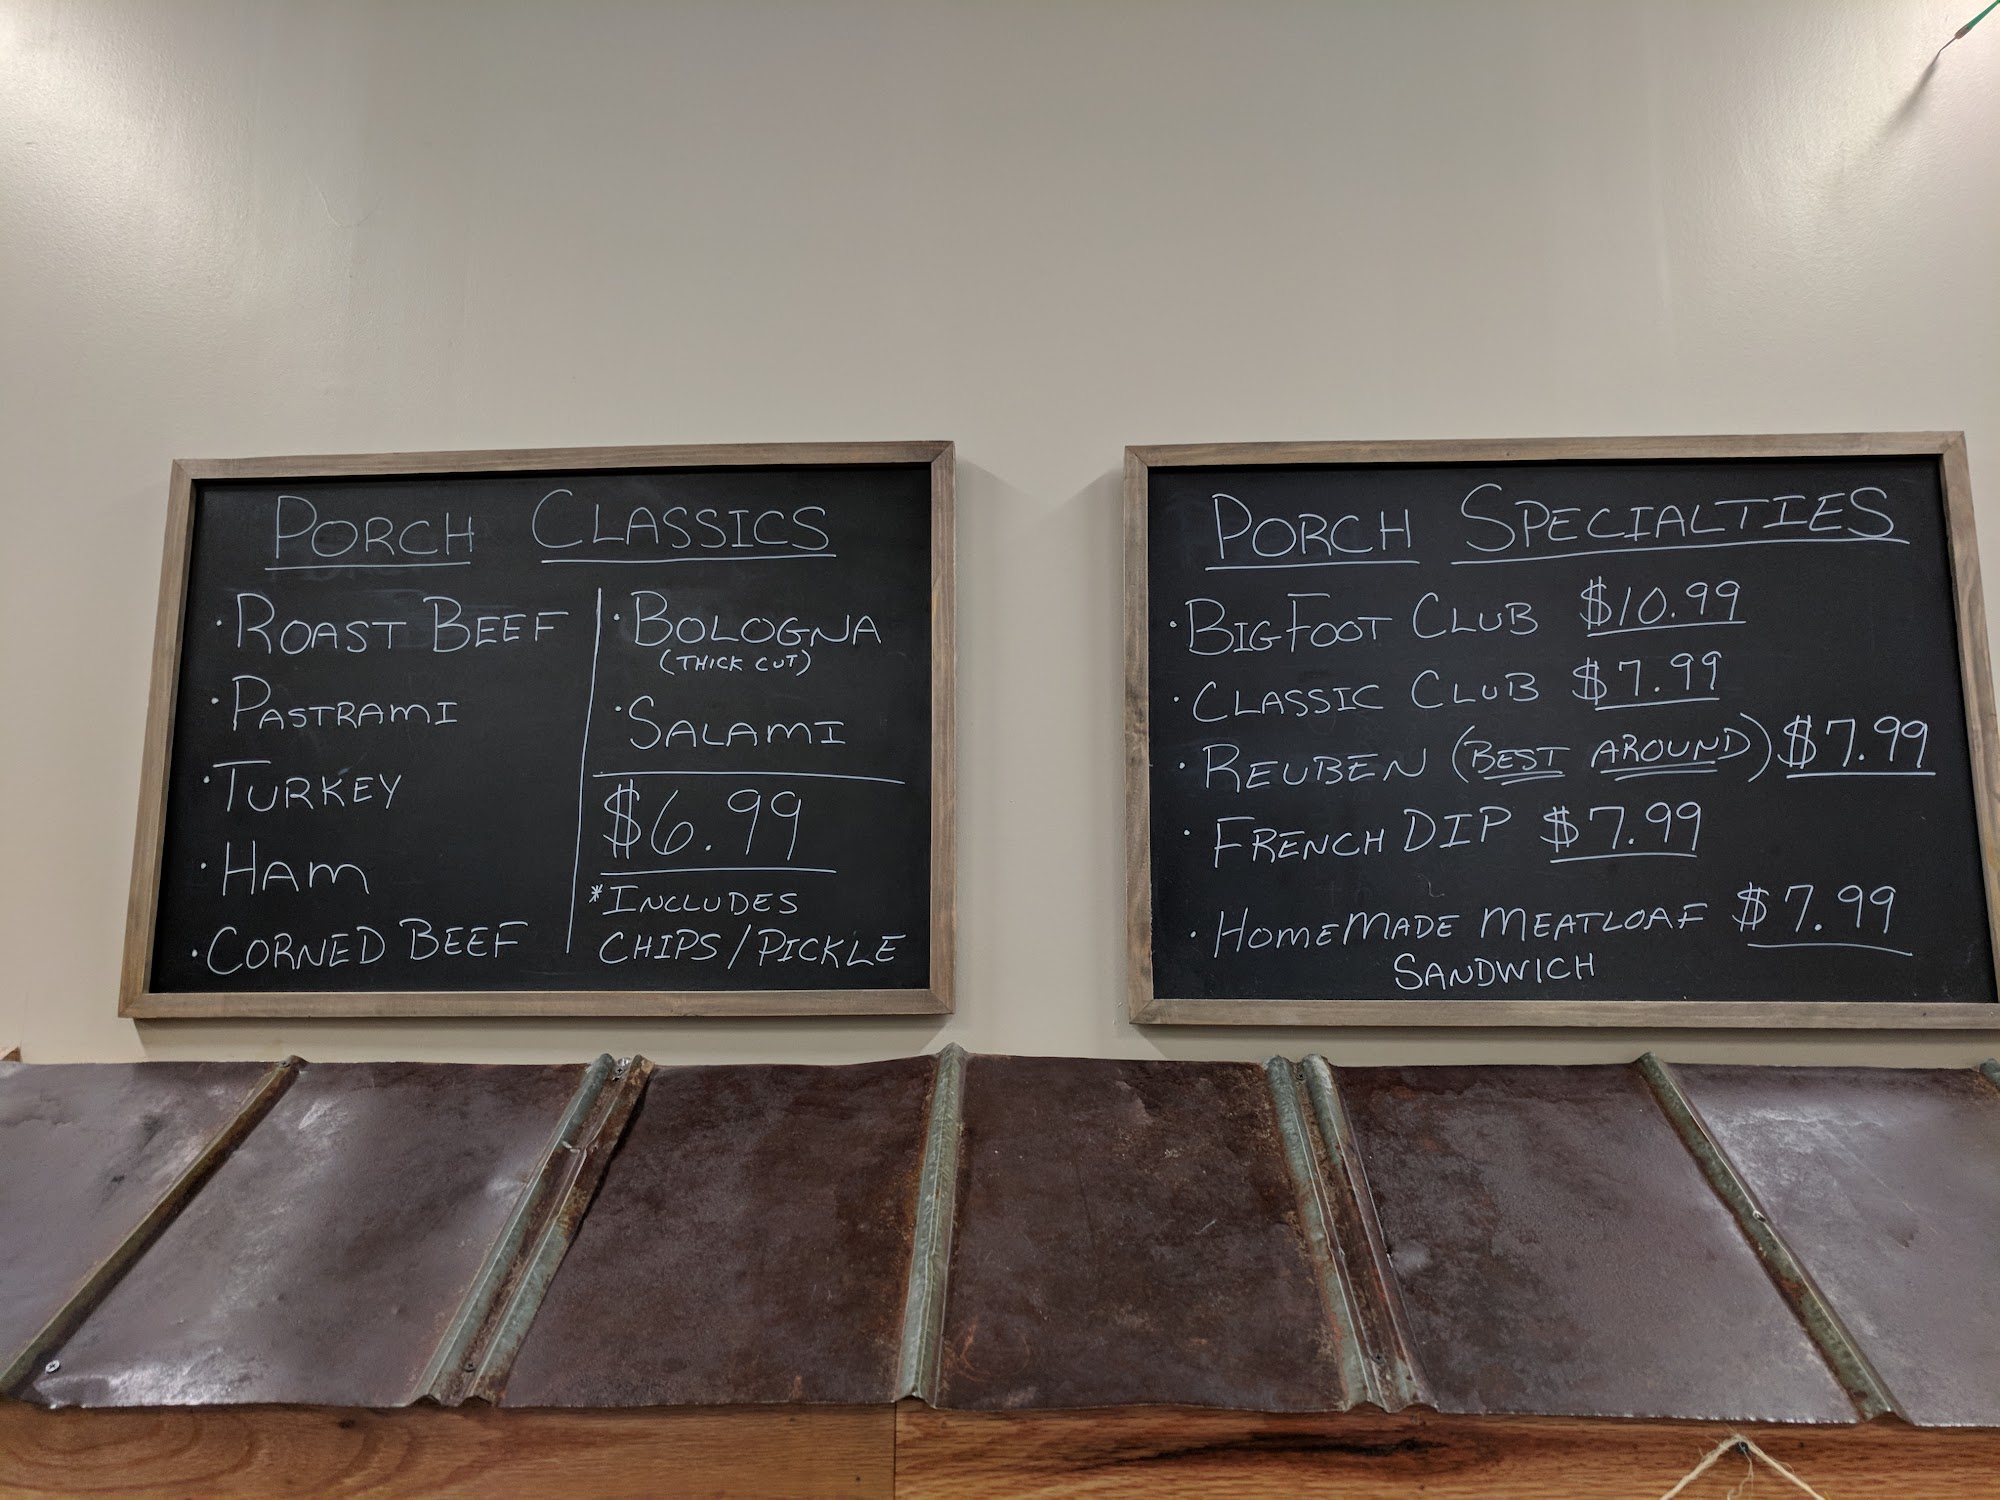 PORCH CLASSICS
• ROAST BEEF
• PASTRAMI
• TURKEY
• HAM
• CORNED BEEF
• BOLOGNA
(THICK CUT)
• SALAMI
$6.99
*INCLUDES
CHIPS/PICKLE
PORCH SPECIALTIES
• BIGFOOT CLUB $10.99
• CLASSIC CLUB $7.99
• REUBEN (BEST AROUND) $7.99
• FRENCH DIP $7.99
• HOMEMADE MEATLOAF $7.99
SANDWICH